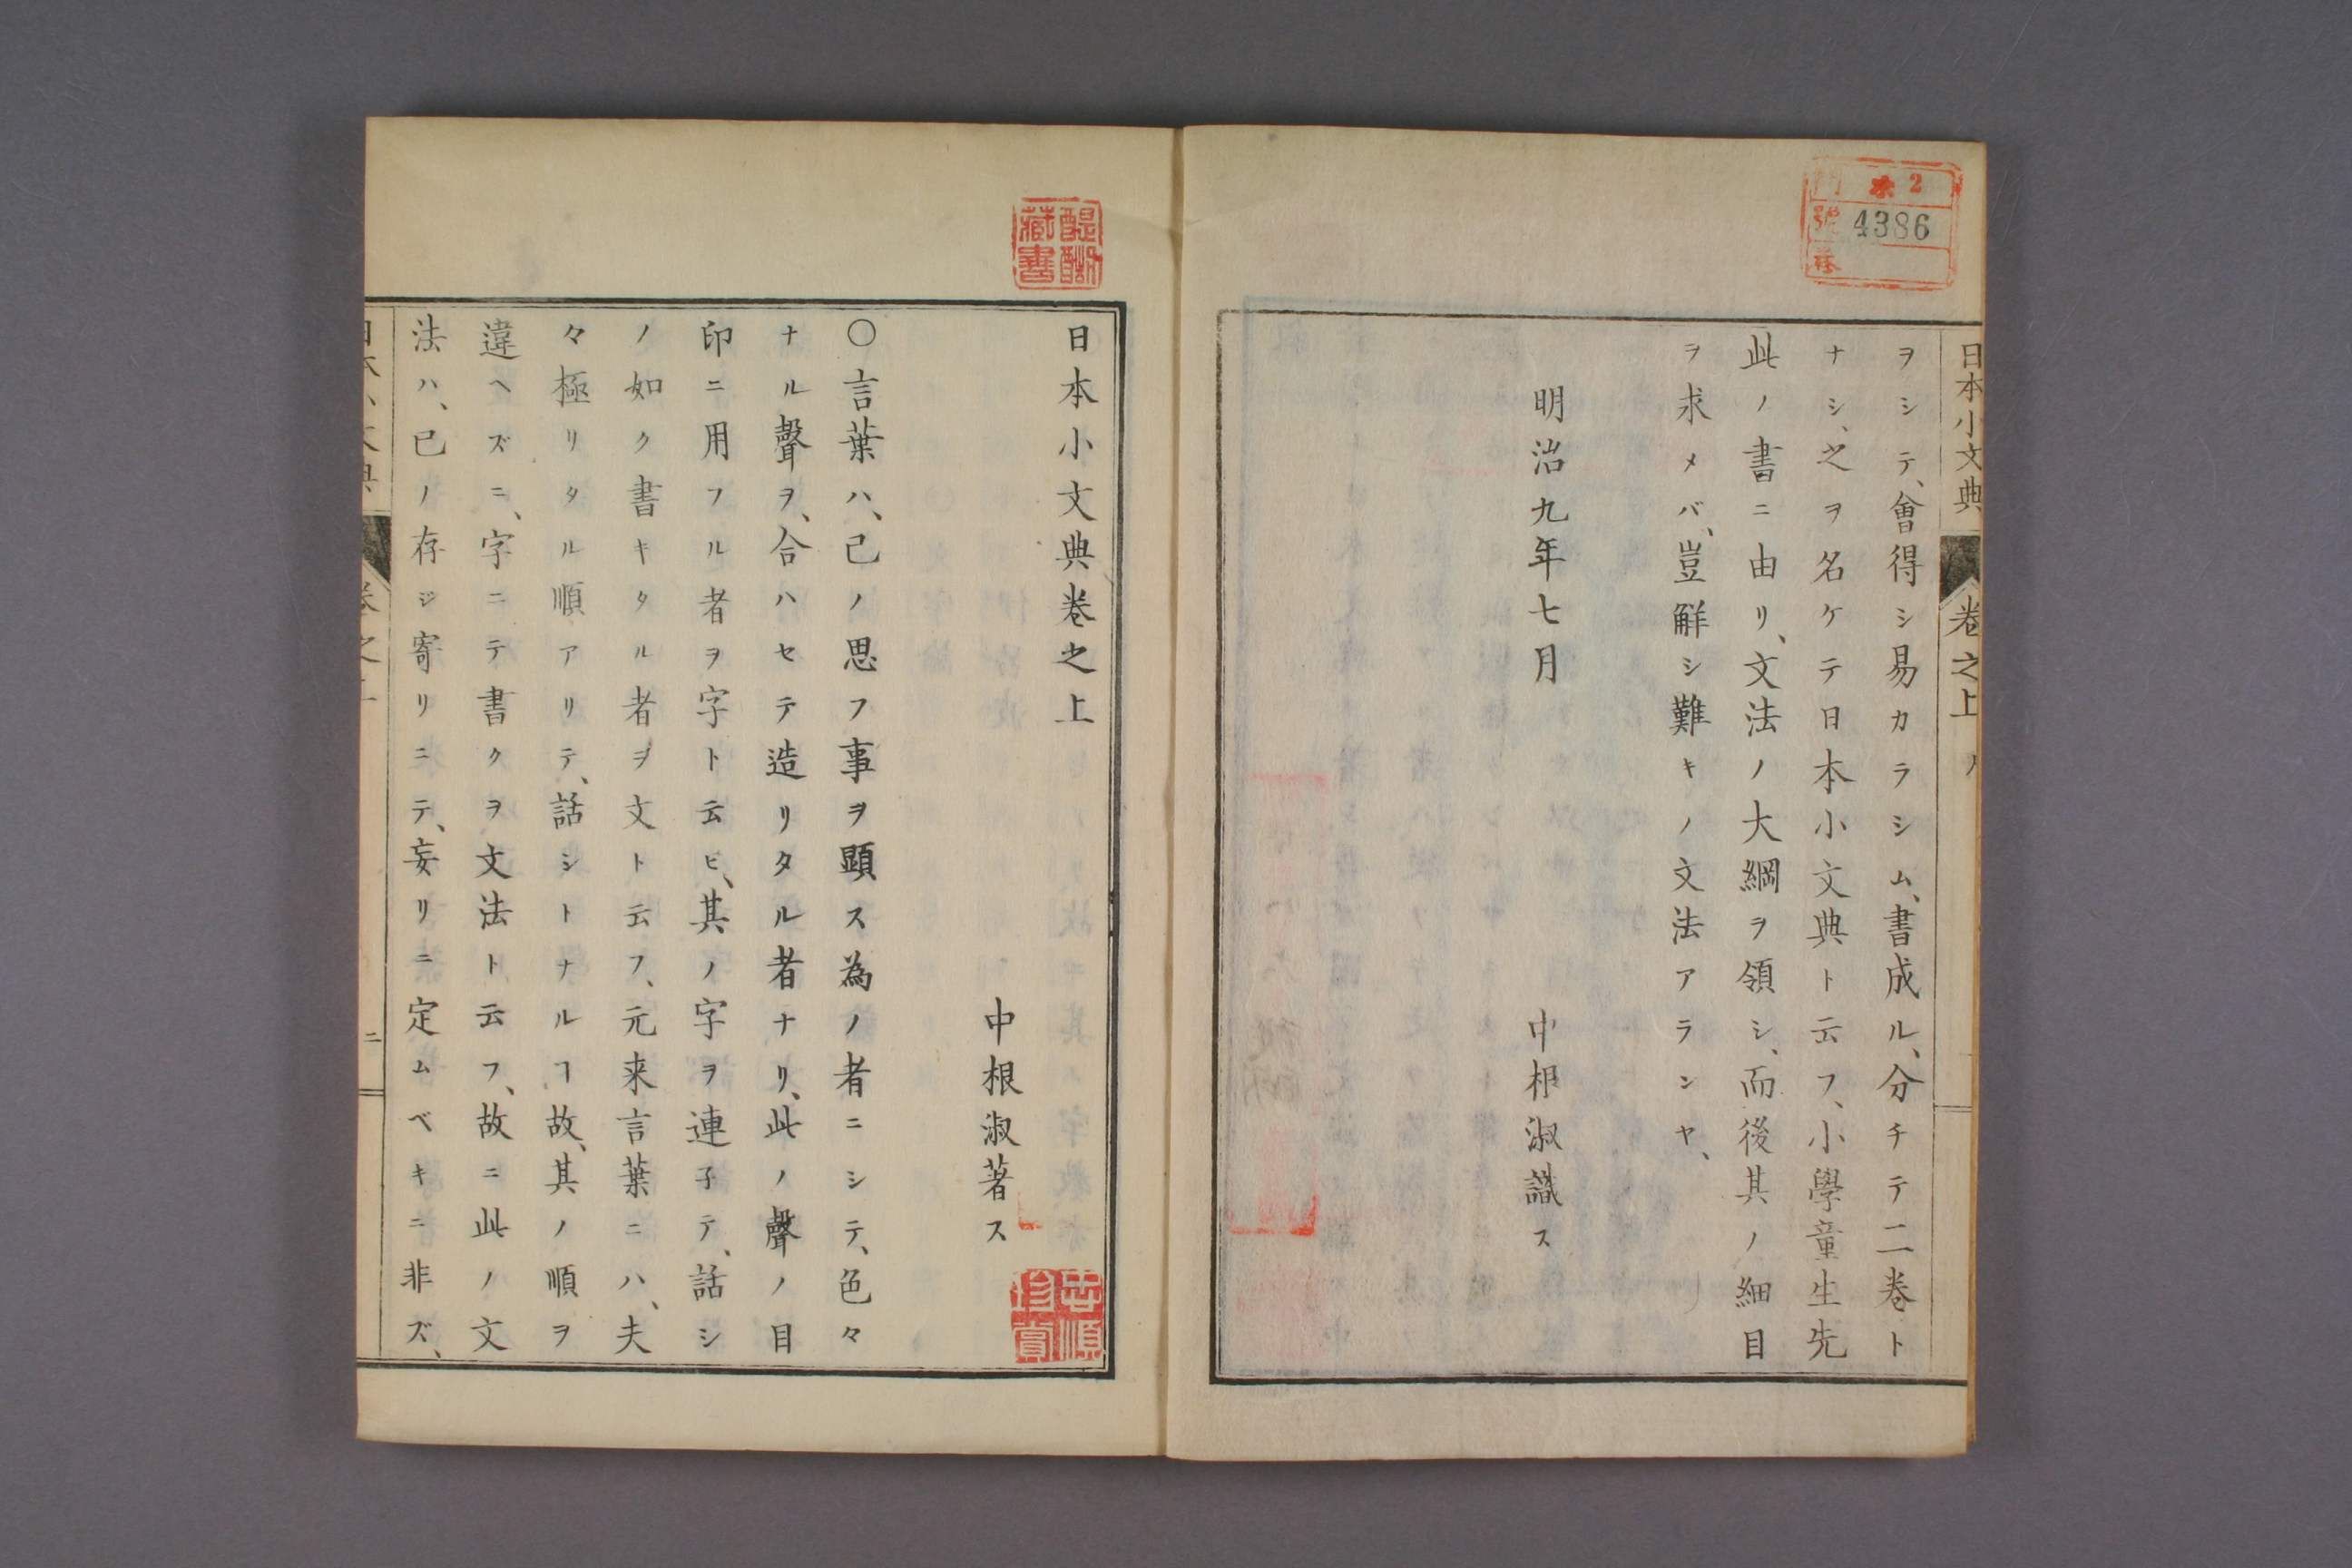 門 2
號 4386
巻
日本小文典 卷之上
ヲシテ、會得シ易カラシム、書成ル、分チテ二卷ト
ナシ、之ヲ名ケテ日本小文典ト云フ、小學童生先
此ノ書ニ由リ、文法ノ大綱ヲ領シ、而後其ノ細目
ヲ求メバ、豈觧シ難キノ文法アランヤ、
明治九年七月 中根淑識ス
醍醐藏書
日本小文典卷之上
中根淑著ス
忠順珍賞
〇言葉ハ、己ノ思フ事ヲ顕ス為ノ者ニシテ、色々
ナル聲ヲ、合ハセテ造リタル者ナリ、此ノ聲ノ目
印ニ用フル者ヲ字ト云ヒ、其ノ字ヲ連子テ、話シ
ノ如ク書キタル者ヲ文ト云フ、元来言葉ニハ、夫
々極リタル順アリテ、話シトナルヿ故、其ノ順ヲ
違ヘズニ、字ニテ書クヲ文法ト云フ、故ニ此ノ文
法ハ、已ノ存ジ寄リニテ、妄リニ定ムベキニ非ズ、
二